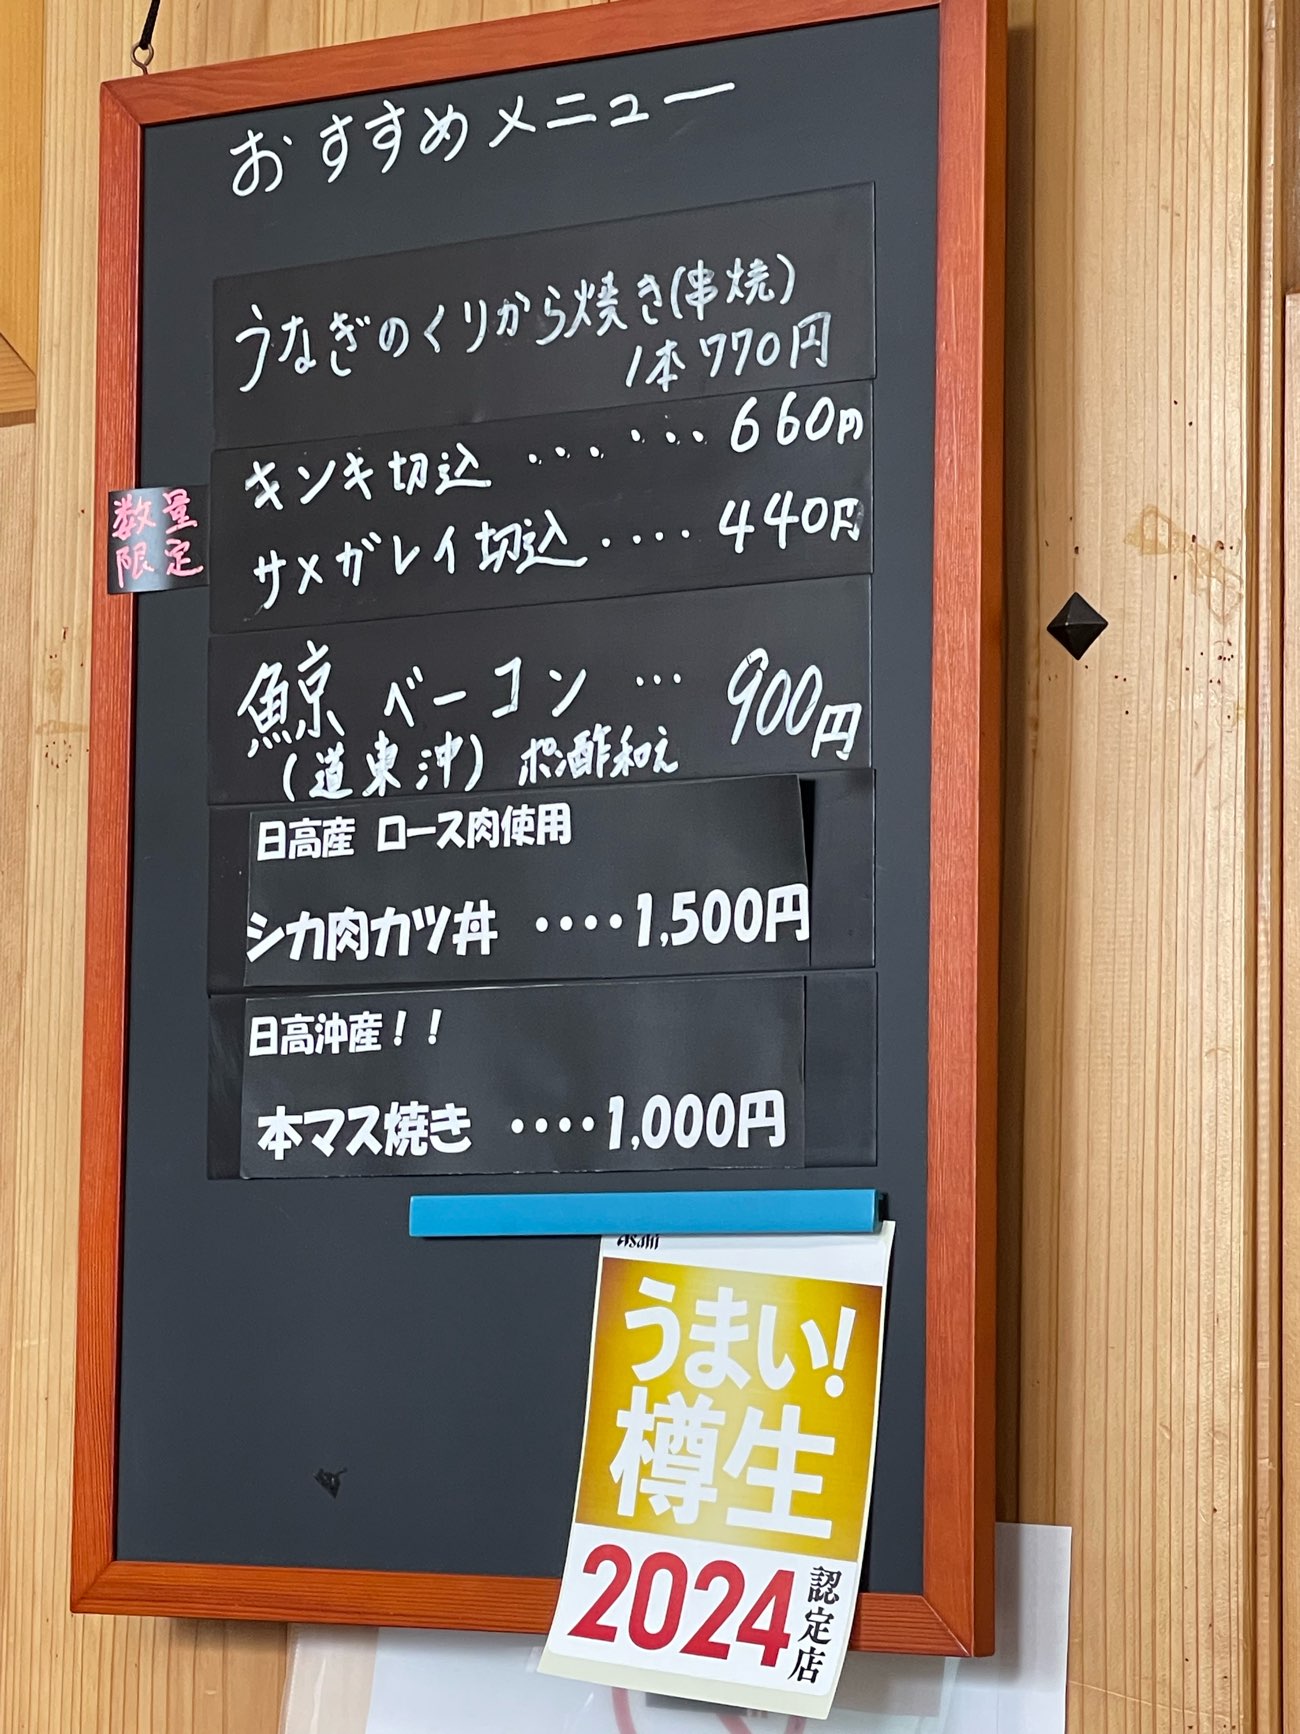 おすすめメニュー
うなぎのくりから焼き(串焼)
1本770円
キンキ切込 ‥‥‥‥ 660円
数量
限定
サメガレイ切込 ‥‥ 440円
鯨 ベーコン … 900円
(道東沖) ポン酢和え
日高産 ロース肉使用
シカ肉カツ丼 ‥‥1,500円
日高沖産!!
本マス焼き ‥‥1,000円
Asahi
うまい!
樽生
2024
認定店